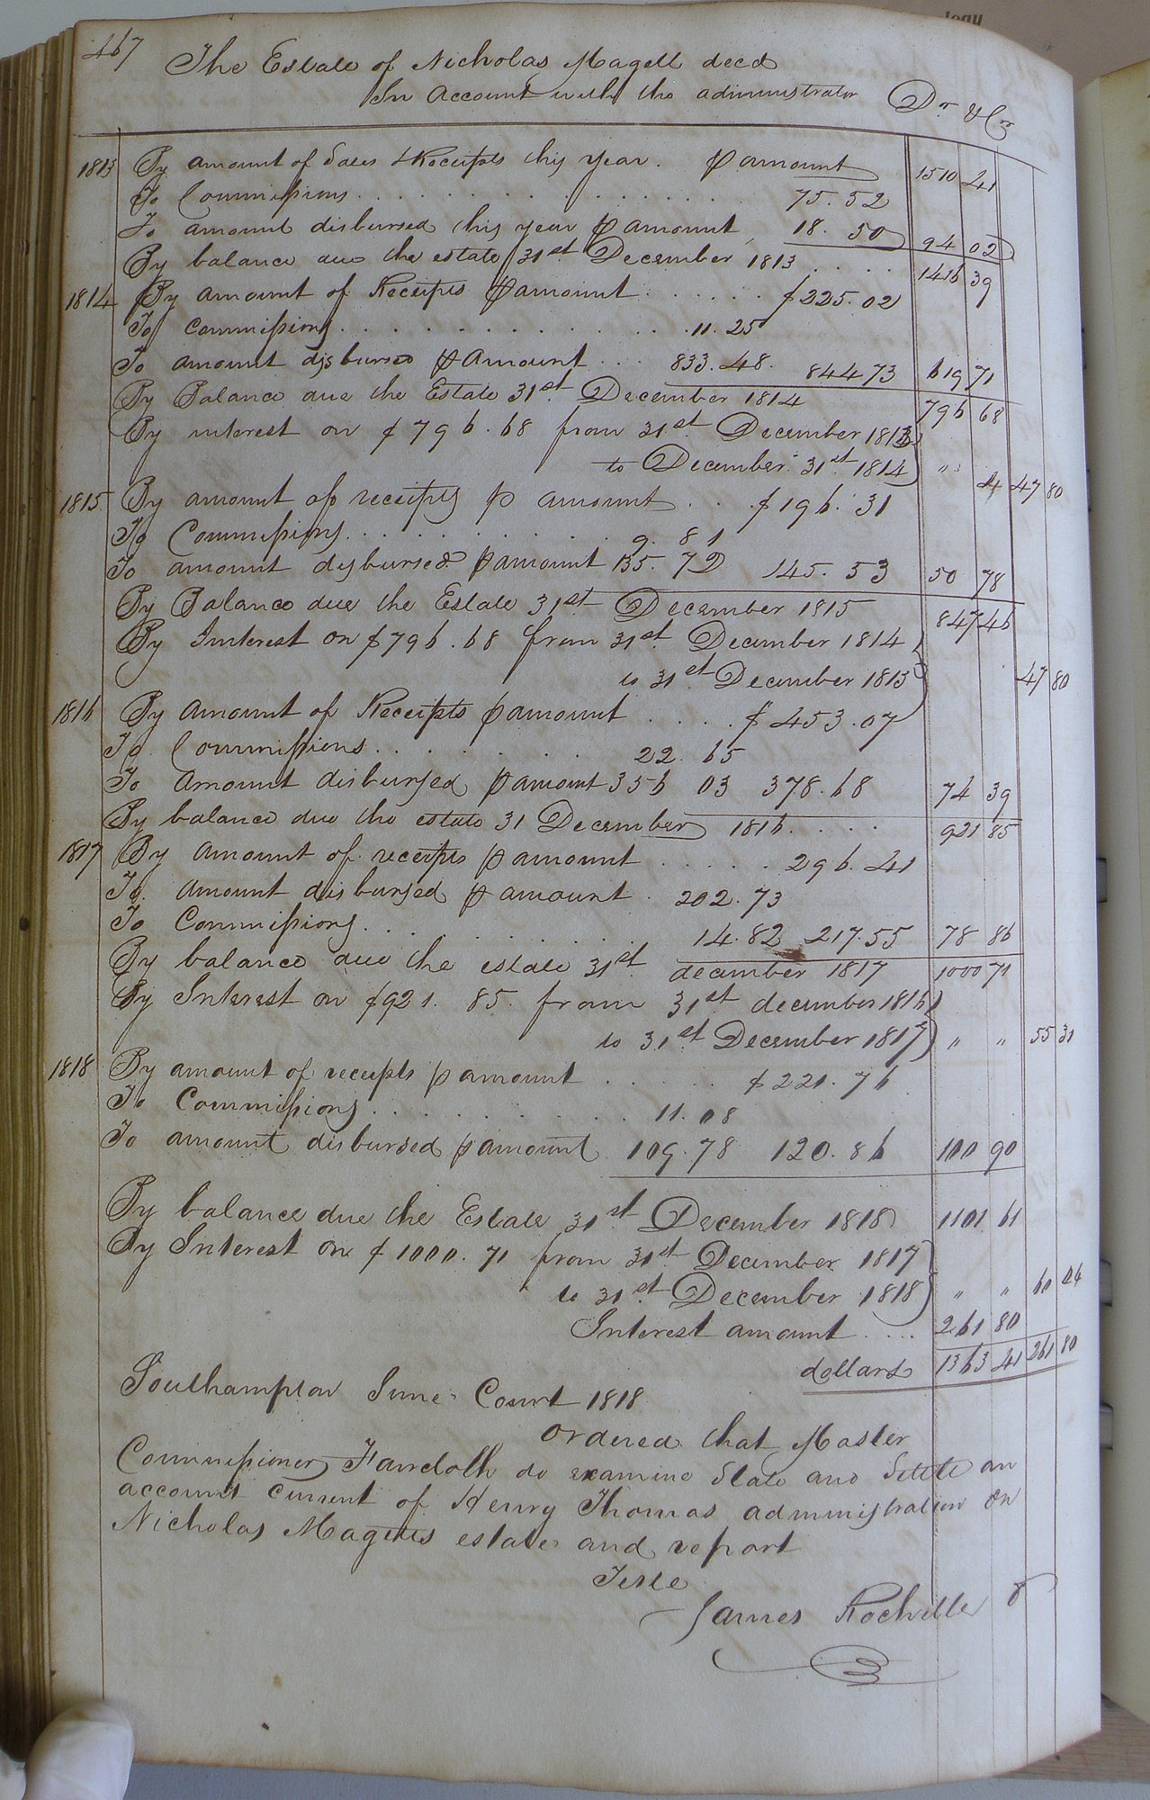 467
The Estate of Nicholas Magett decd
In Account with the administrator Dr & Cr
1813 By amount of Sales & Receipts this year. p amount 1510 41
To Commissions 75.52
To amount disbursed this year p amount 18.50 94 02
By balance due the estate 31st December 1813 1416 39
1814 By amount of Receipts p amount $225.02
To commissions 11.25
To amount disbursed p amount 833.48. 844 73 619 71
By Balance due the Estate 31st December 1814 796 68
By interest on $796.68 from 31st December 1813
to December 31st 1814 " 47 80
1815 By amount of receipts p amount $196.31
To Commissions 9.81
To amount disbursed p amount 135.72 145.53 50 78
By Balance due the Estate 31st December 1815 847 46
By Interest on $796.68 from 31st December 1814
to 31st December 1815 47 80
1816 By Amount of Receipts p amount $453.07
To Commissions 22 65
To Amount disbursed p amount 356 03 378.68 74 39
By balance due the estate 31 December 1816 921 85
1817 By Amount of receipts p amount 296.41
To Amount disbursed p amount 202.73
To Commissions 14.82 217.55 78 86
By balance due the estate 31st december 1817 1000 71
By Interest on $921.85. from 31st december 1816
to 31st December 1817 " " 55 31
1818 By amount of receipts p amount $221.76
To Commissions 11.08
To amount disbursed p amount 109.78 120.86 100 90
By balance due the Estate 31st December 1818 1101 61
By Interest on $1000.71 from 31st December 1817
to 31st December 1818 " " 60 04
Interest amount 261 80
dollars 1363 41 261 80
Southampton June Court 1818
Ordered that Master
Commissioner do examine State and Settle an
account current of Henry Thomas administration on
Nicholas Magetts estate and report
Teste
James Rochelle